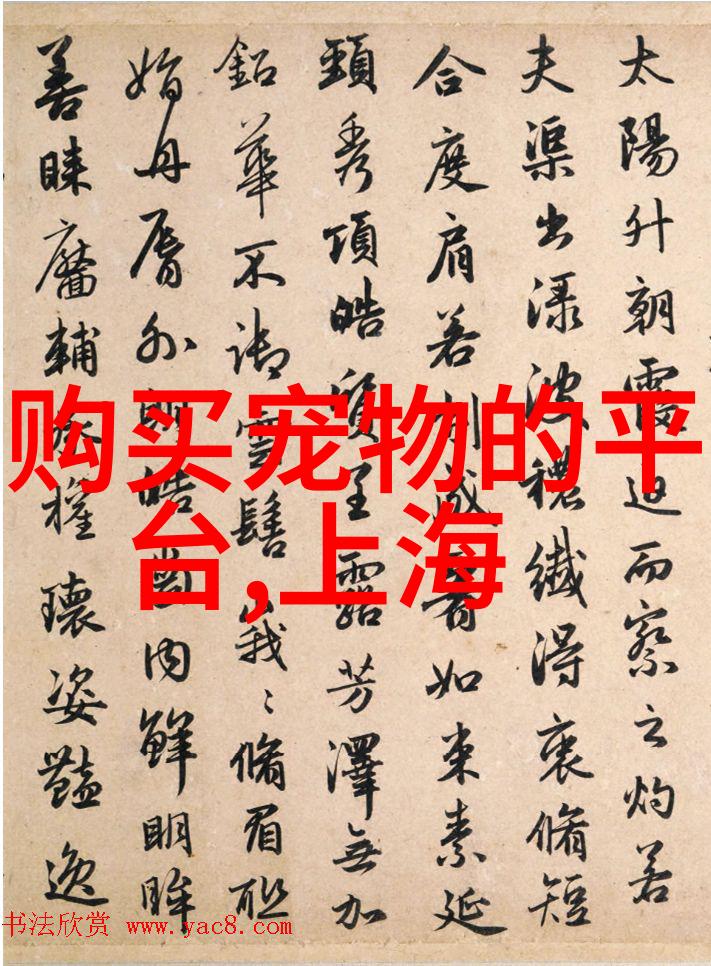 太陽升朝霞迫而察之灼若
夫渠出渌波穠纖得衷脩短
合度肩若削成要如束素延
頸秀項皓質呈露芳澤無加
鉛華不御雲髻峩〻脩眉聯
娟丹脣外朗皓齒内鮮明眸
善睞靨輔承權瓌姿豔逸
购买宠物的平
台,上海
书法欣赏 www.yac8.com